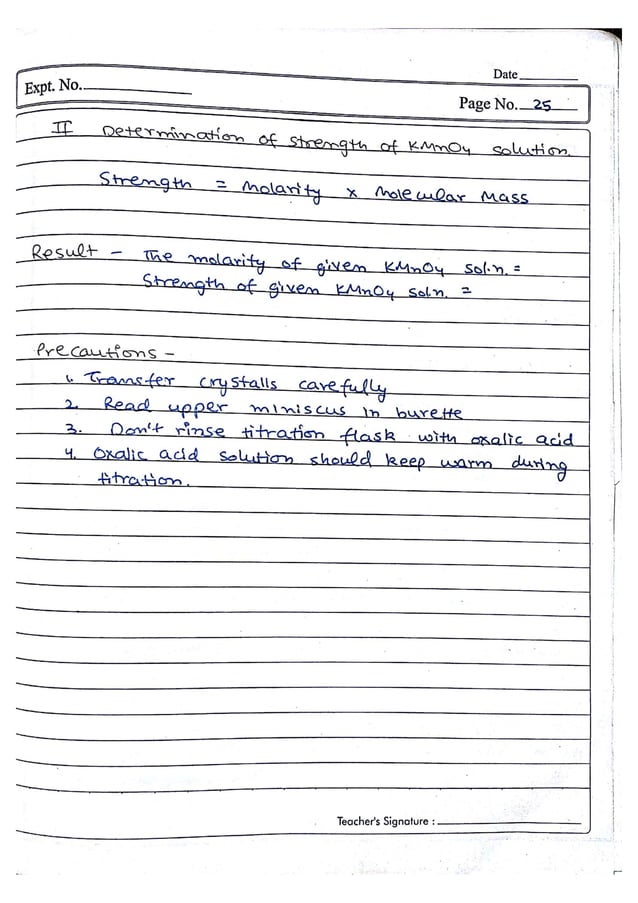 Date
Expt. No.
Page No. 25
II Determination of Strength of KMnO4 solution.
Strength = Molarity x Molecular Mass
Result - The molarity of given KMnO4 sol.n. =
Strength of given KMnO4 soln. =
Precautions -
1. Transfer crystalls carefully
2. Read upper miniscus in burette
3. Don't rinse titration flask with oxalic acid
4. Oxalic acid solution should keep warm during
titration.
Teacher's Signature :